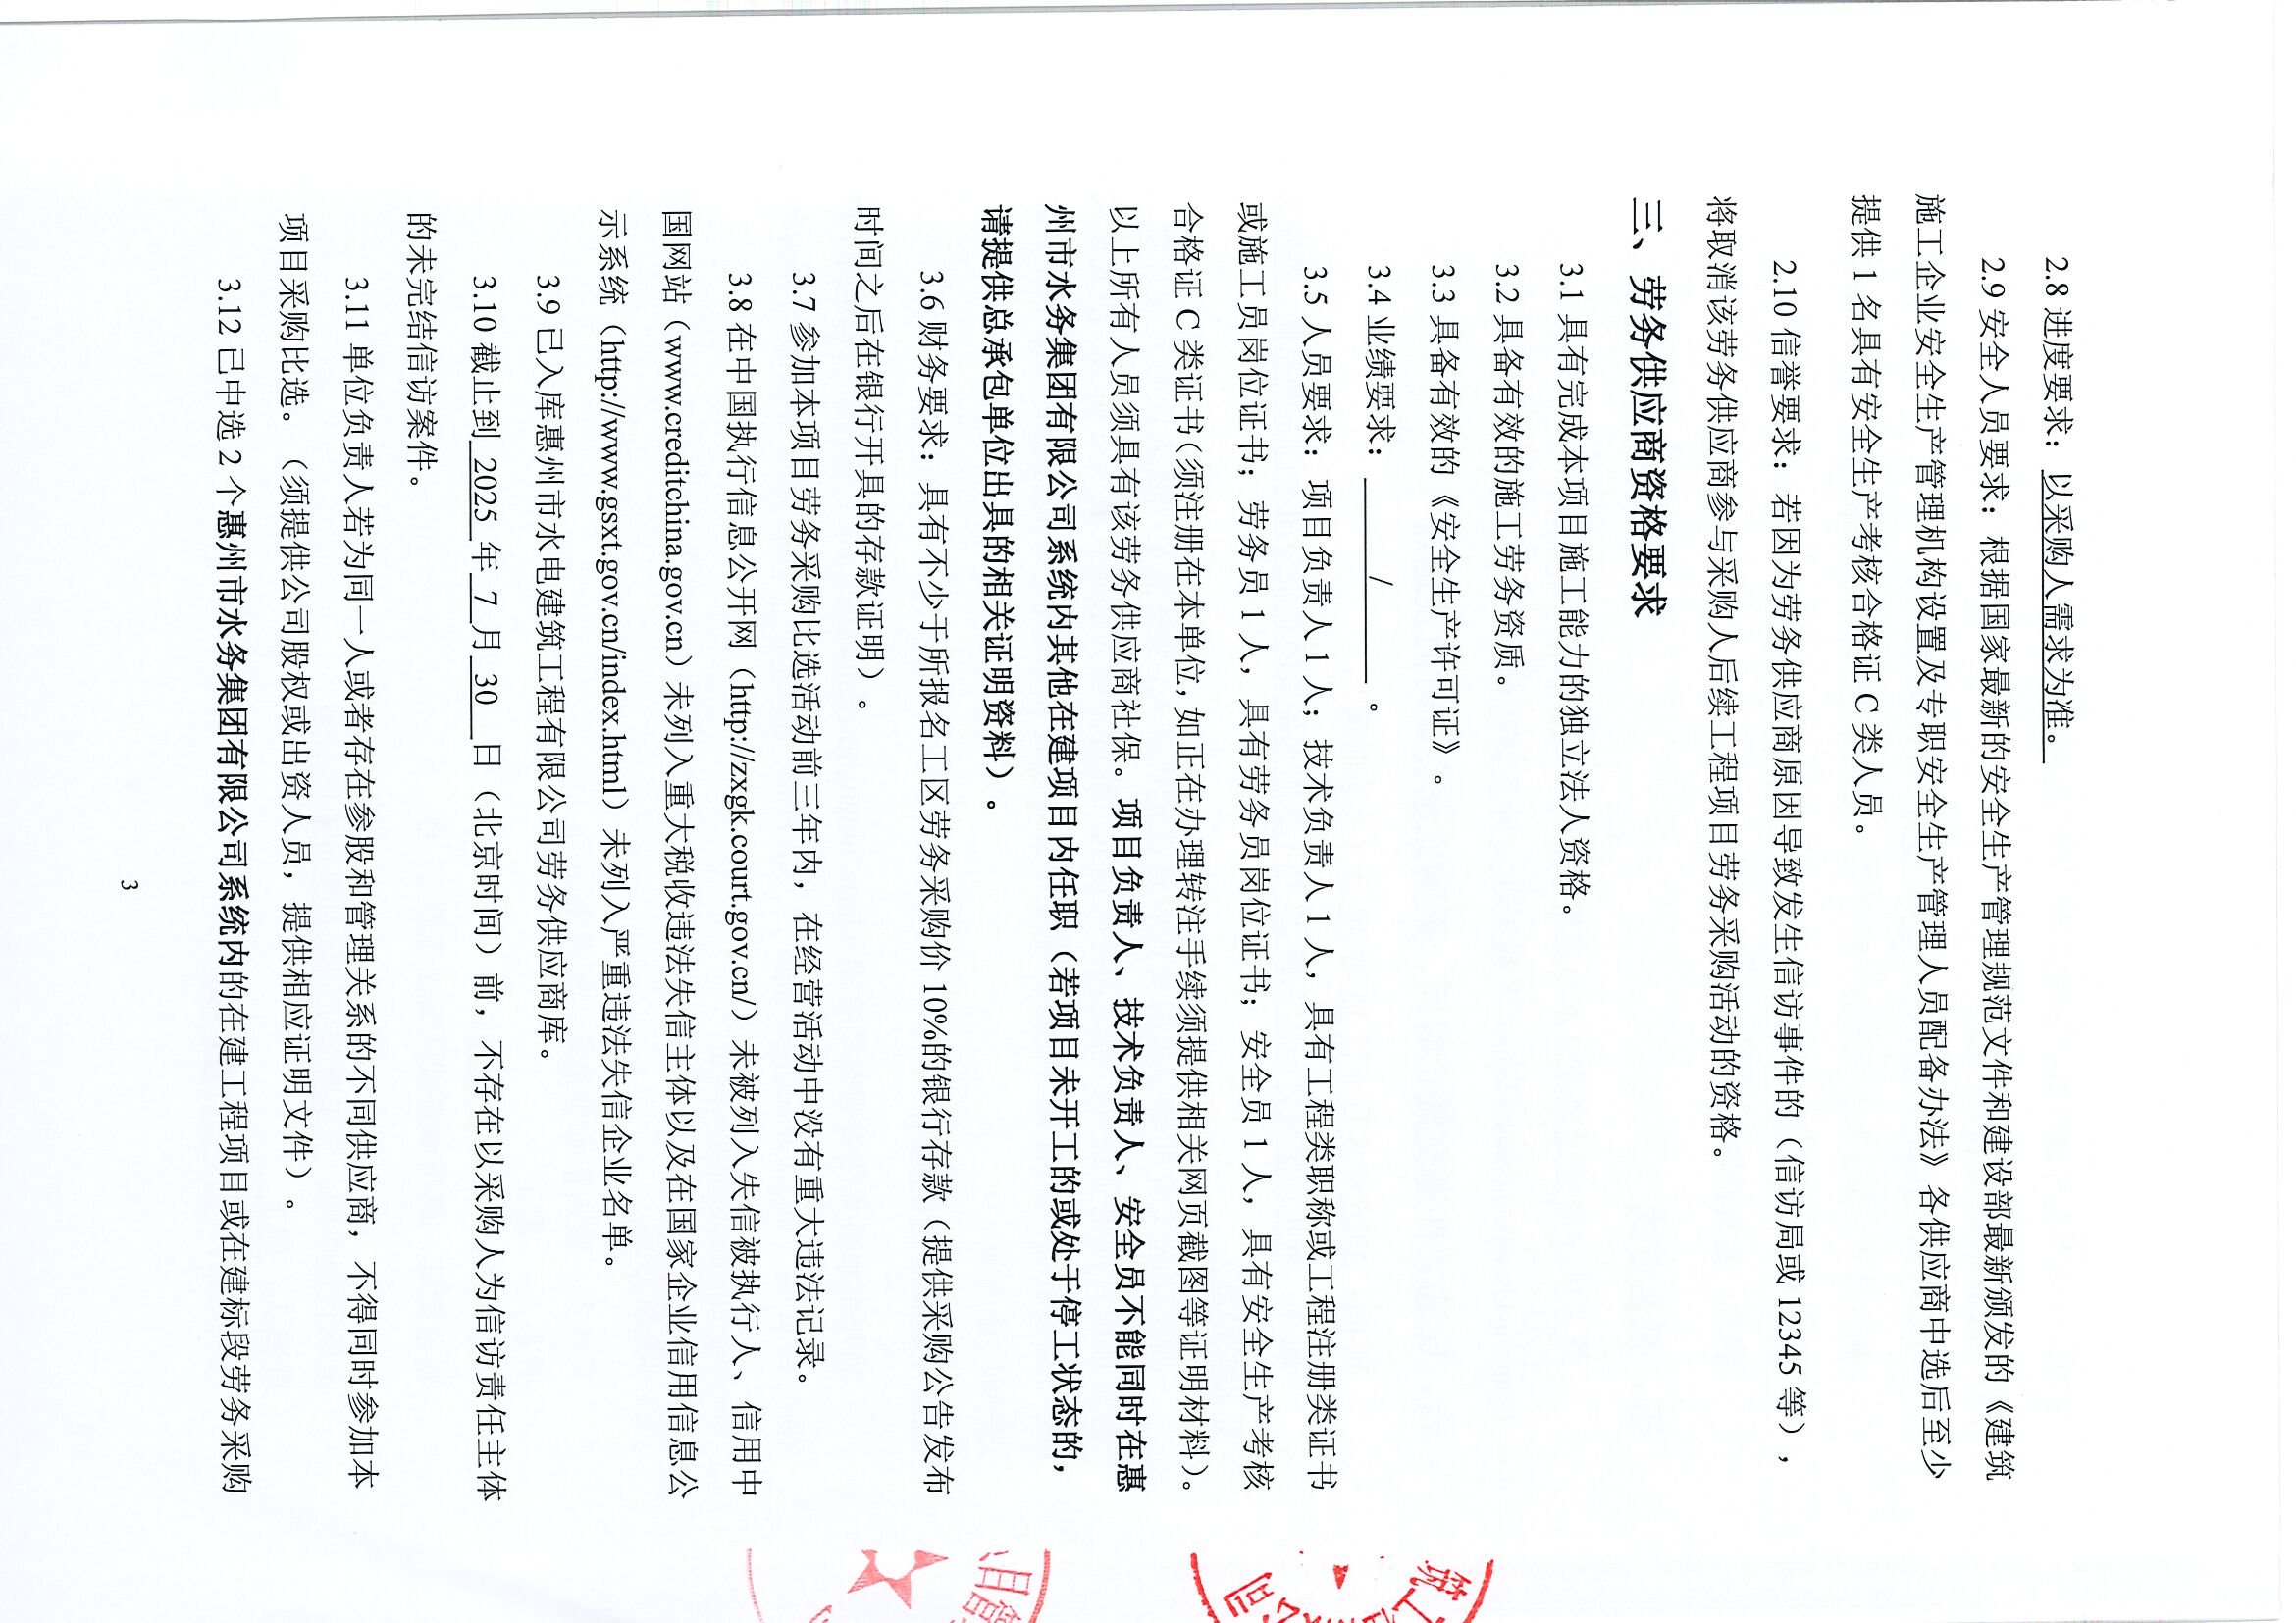 2.8 进度要求：以采购人需求为准。
2.9 安全人员要求：根据国家最新的安全生产管理规范文件和建设部最新颁发的《建筑
施工企业安全生产管理机构设置及专职安全生产管理人员配备办法》各供应商中选后至少
提供 1 名具有安全生产考核合格证 C 类人员。
2.10 信誉要求：若因为劳务供应商原因导致发生信访事件的（信访局或 12345 等），
将取消该劳务供应商参与采购人后续工程项目劳务采购活动的资格。
三、劳务供应商资格要求
3.1 具有完成本项目施工能力的独立法人资格。
3.2 具备有效的施工劳务资质。
3.3 具备有效的《安全生产许可证》。
3.4 业绩要求：/。
3.5 人员要求：项目负责人 1 人；技术负责人 1 人，具有工程类职称或工程注册类证书
或施工员岗位证书；劳务员 1 人，具有劳务员岗位证书；安全员 1 人，具有安全生产考核
合格证 C 类证书（须注册在本单位，如正在办理转注手续须提供相关网页截图等证明材料）。
以上所有人员须具有该劳务供应商社保。项目负责人、技术负责人、安全员不能同时在惠
州市水务集团有限公司系统内其他在建项目内任职（若项目未开工的或处于停工状态的，
请提供总承包单位出具的相关证明资料）。
3.6 财务要求：具有不少于所报名工区劳务采购价 10%的银行存款（提供采购公告发布
时间之后在银行开具的存款证明）。
3.7 参加本项目劳务采购比选活动前三年内，在经营活动中没有重大违法记录。
3.8 在中国执行信息公开网（http://zxgk.court.gov.cn/）未被列入失信被执行人、信用中
国网站（www.creditchina.gov.cn）未列入重大税收违法失信主体以及在国家企业信用信息公
示系统（http://www.gsxt.gov.cn/index.html）未列入严重违法失信企业名单。
3.9 已入库惠州市水电建筑工程有限公司劳务供应商库。
3.10 截止到 2025 年 7 月 30 日（北京时间）前，不存在以采购人为信访责任主体
的未完结信访案件。
3.11 单位负责人若为同一人或者存在参股和管理关系的不同供应商，不得同时参加本
项目采购比选。（须提供公司股权或出资人员，提供相应证明文件）。
3.12 已中选 2 个惠州市水务集团有限公司系统内的在建工程项目或在建标段劳务采购
3